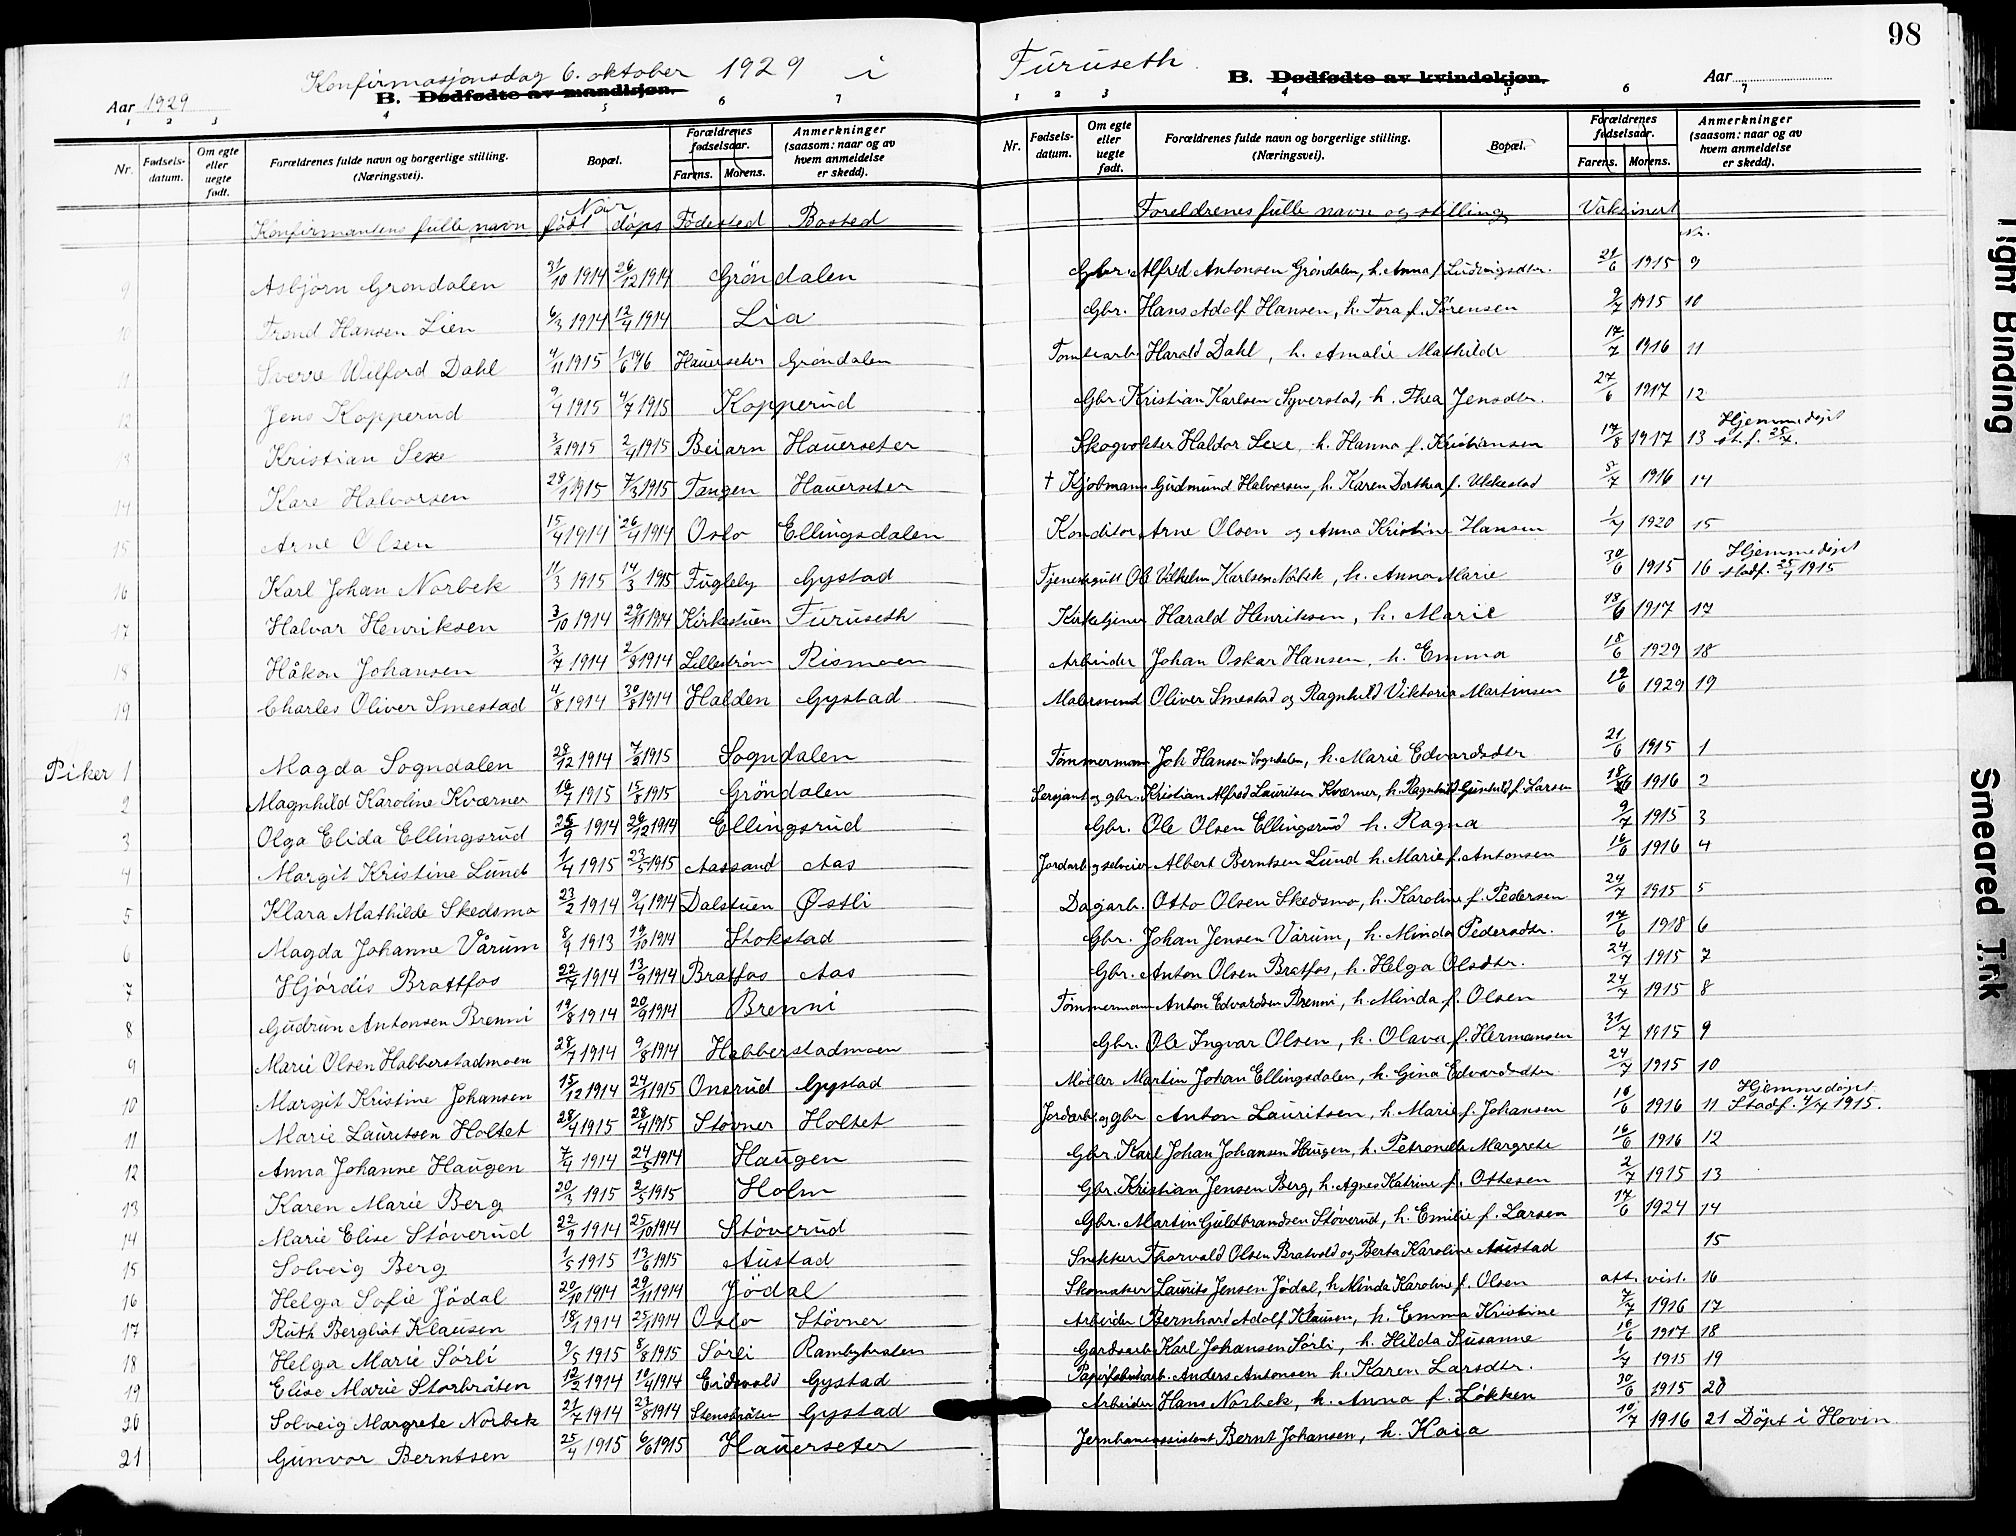 98
Konfirmasjonsdag 6. oktober 1929 i Furuseth
Aar 1929 B. Dødfødte av mandkjøn.
B. Dødfødte av kvindekjøn. Aar
1 2 3 4 5 6 7
1 2 3 4 5 6 7
Nr. Fødsels-datum. Om egte eller uegte født. Forældrenes fulde navn og borgerlige stilling. (Næringsvei). Bopæl. Forældrenes fødselsaar. Farens. Morens. Anmerkninger (saasom: naar og av hvem anmeldelse er skedd).
Nr. Fødsels-datum. Om egte eller uegte født. Forældrenes fulde navn og borgerlige stilling. (Næringsvei). Bopæl. Forældrenes fødselsaar. Farens. Morens. Anmerkninger (saasom: naar og av hvem anmeldelse er skedd).
Når
Konfirmantens fulle navn født døpt Fødested Bosted Foreldrenes fulle navn og stilling Vaksinert
Nr.
9 Asbjörn Grøndalen 31/10 1914 26/12 1914 Gröndalen Gbr. Alfred Antonsen Gröndalen, h. Anna f. Ludvigsdtr. 21/6 1915 9
10 Trond Hansen Lien 6/3 1914 12/4 1914 Lia Gbr. Hans Adolf Hansen, h. Tora f. Sørensen 9/7 1915 10
11 Sverre Wilford Dahl 4/11 1915 1/6 1916 Hauerseter Gröndalen Tomtearb. Harald Dahl, h. Amalie Mathilde 17/7 1916 11
12 Jens Kopperud 9/4 1915 4/7 1915 Kopperud Gbr. Kristian Karlsen Syverstad, h. Thea Jensdtr. 27/6 1917 12
13 Kristian Sexe 3/2 1915 2/4 1915 Beiarn Hauerseter Skogvokter Haldor Sexe, h. Hanna f. Kristiansen 17/8 1917 13 Hjemmedöpt st. f. 25/7.
14 Kare Halvorsen 28/1 1915 7/3 1915 Tangen Hauerseter † Kjøbmann Gudmund Halvorsen, h. Karen Dorthea f. Ukkestad 5/7 1916 14
15 Arne Olsen 15/4 1914 26/4 1914 Oslo Ellingsdalen Konditor Arne Olsen og Anna Kristine Hansen 1/7 1920 15
16 Karl Johan Norbek 11/3 1915 14/3 1915 Fugleby Gystad Tjenestgutt Ole Vilhelm Karlsen Norbek, h. Anna Marie 30/6 1915 16 Hjemmedöpt stadf. 25/4 1915
17 Halvar Henriksen 3/10 1914 29/11 1914 Kirkestuen Furuseth Kirketjener Harald Henriksen, h. Marie 18/6 1917 17
18 Håkon Johansen 3/7 1914 2/8 1914 Lillestrøm Rismoen Arbeider Johan Oskar Hansen, h. Emma 18/6 1929 18
19 Charles Oliver Smestad 4/8 1914 30/8 1914 Halden Gystad Malersvend Oliver Smestad og Ragnhild Viktoria Martinsen 19/6 1929 19
Piker 1 Magda Sogndalen 28/12 1914 7/2 1915 Sogndalen Tömmermann Joh Hansen Sogndalen, h. Marie Edvardsdtr 21/6 1915 1
2 Magnhild Karoline Kværner 16/7 1915 15/8 1915 Gröndalen Sersjant og gbr. Kristian Alfred Lauritsen Kværner, h. Ragnhild Gunhild f. Larsen 18/6 1916 2
3 Olga Elida Ellingsrud 25/9 1914 26/12 1914 Ellingsrud Gbr. Ole Olsen Ellingsrud h. Ragna 9/7 1915 3
4 Margit Kristine Lund 1/4 1915 23/5 1915 Aassand Aas Jordarb. og selveier Albert Berntsen Lund h. Marie f. Antonsen 16/6 1916 4
5 Klara Mathilde Skedsmo 23/2 1914 9/4 1914 Dalstuen Østli Dagarb. Otto Olsen Skedsmo, h. Karoline f. Pedersen 24/7 1915 5
6 Magda Johanne Vårum 8/9 1913 19/10 1914 Stokstad Gbr. Johan Jensen Vårum, h. Minda Pedersdtr. 17/6 1918 6
7 Hjördis Brattfos 22/7 1914 13/9 1914 Bratfos Aas Gbr. Anton Olsen Bratfos, h. Helga Olsdtr. 24/7 1915 7
8 Gudrun Antonsen Brenni 19/8 1914 20/9 1914 Brenni Tömmermann Anton Edvardsen Brenni, h. Minda f. Olsen 24/7 1915 8
9 Marie Olsen Habberstadmoen 28/7 1914 9/8 1914 Habberstadmoen Gbr. Ole Ingvar Olsen, h. Olava f. Hermansen 31/7 1915 9
10 Margit Kristine Johansen 15/12 1914 24/1 1915 Onsrud Gystad Møller Martin Johan Ellingsdalen, h. Gina Edvardsdtr. 24/7 1915 10
11 Marie Lauritsen Holtet 28/4 1915 28/4 1915 Støvner Holtet Jordarb. og gbr Anton Lauritsen, h. Marie f. Johansen 16/6 1916 11 Hjemmedøpt. Stadf. 4/7 1915.
12 Anna Johanne Haugen 7/4 1914 24/5 1914 Haugen Gbr. Karl Johan Johansen Haugen, h. Petronelle Margrete 16/6 1916 12
13 Karen Marie Berg 20/3 1915 2/5 1915 Holm Gbr. Kristian Jensen Berg, h. Agnes Katrine f. Ottesen 2/7 1915 13
14 Marie Elise Støverud 22/9 1914 25/10 1914 Støverud Gbr. Martin Guldbrandsen Støverud, h. Emilie f. Larsen 17/6 1924 14
15 Solveig Berg 1/5 1915 13/6 1915 Austad Snekker Thorvald Olsen Bratvold og Berta Karoline Austad 15
16 Helga Sofie Jödal 20/10 1914 29/11 1914 Jödal Skomaker Laurits Jensen Jødal, h. Minda Karoline f. Olsen att. vist. 16
17 Ruth Bergliot Klausen 18/1 1914 25/1 1914 Oslo Støvner Arbeider Bernhard Adolf Klausen, h. Emma Kristine 7/7 1926 17
18 Helga Marie Sörli 9/5 1915 8/8 1915 Sörli Rambybraten Gardsarb. Karl Johansen Sörli, h. Hilda Susanne 16/6 1917 18
19 Elise Marie Storbråten 12/2 1914 10/4 1914 Eidsvold Gystad Papirfabrikarb. Anders Antonsen h. Karen Larsdtr. 1/7 1915 19
20 Solveig Margrete Norbek 21/7 1914 23/8 1914 Stensbråten Gystad Arbeider Hans Norbek, h. Anna f. Løkken 30/6 1915 20
21 Gunvor Berntsen 25/4 1915 6/6 1915 Hauerseter Jernbaneassistent Bernt Johansen, h. Kaia 10/7 1916 21 Döpt i Hovin
Tight Binding
Smeared Ink